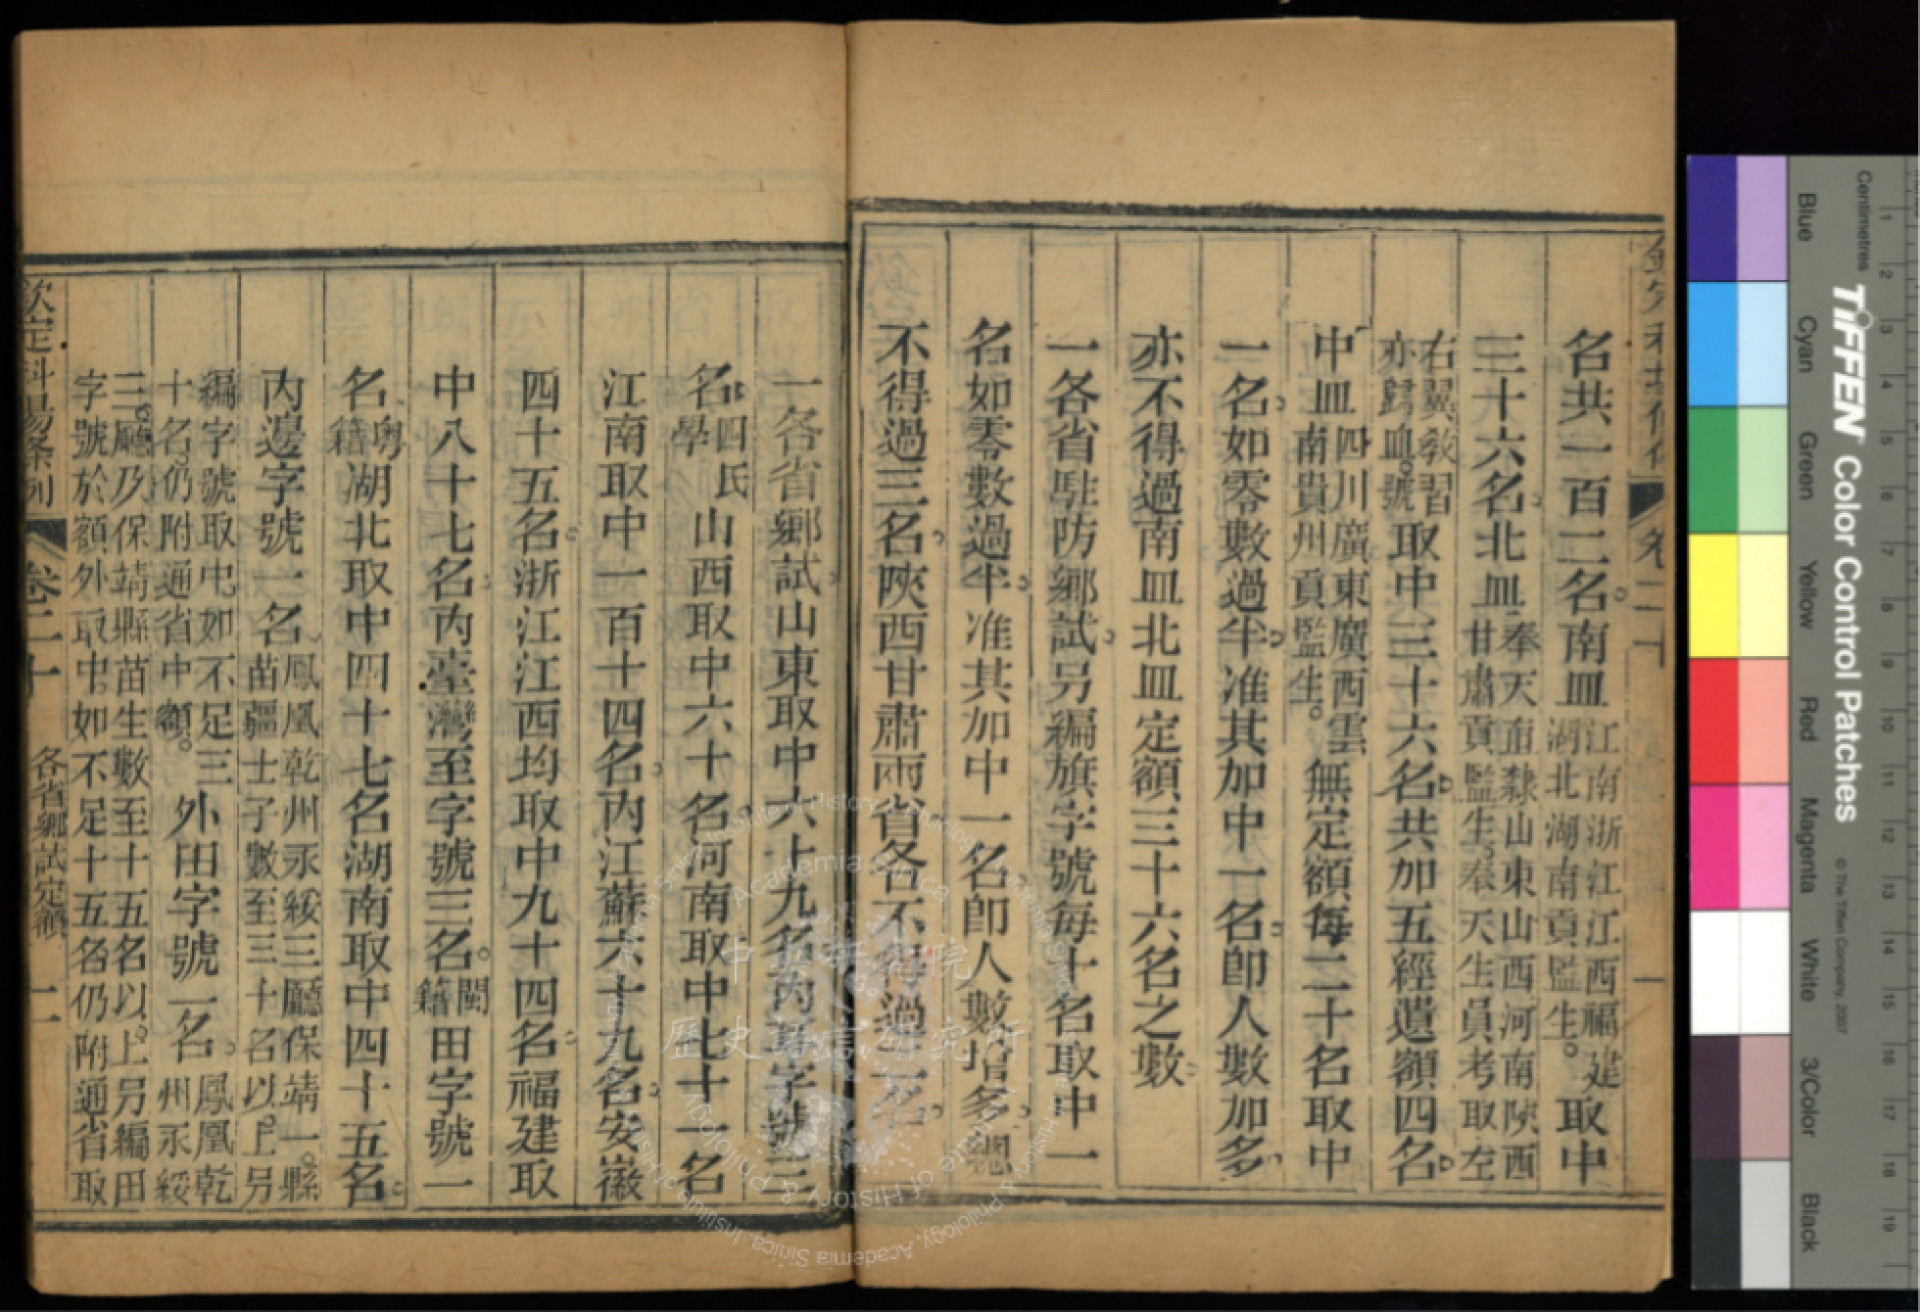 名共一百二名南皿江南浙江江西福建湖北湖南貢監生。取中
三十六名北皿奉天直隸山東山西河南陝西甘肅貢監生奉天生員考取左
右翼教習亦歸皿號取中三十六名共加五經遺額四名
中皿四川廣東廣西雲南貴州貢監生。無定額每二十名取中
一名如零數過半准其加中一名卽人數加多
亦不得過南皿北皿定額三十六名之數
一各省駐防鄉試另編旗字號每十名取中一
名如零數過半准其加中一名卽人數增多總
不得過三名陝西甘肅兩省各不得過二名
一各省鄉試山東取中六十九名內耳字號三
名四氏學山西取中六十名河南取中七十一名
江南取中一百十四名內江蘇六十九名安徽
四十五名浙江江西均取中九十四名福建取
中八十七名內臺灣至字號三名。閩籍田字號一
名粵籍湖北取中四十七名湖南取中四十五名
內邊字號一名鳳凰乾州永綏三廳保靖一縣苗疆士子數至三十名以上另
編字號取中如不足三十名仍附通省中額。外田字號一名。鳳凰乾州永綏
三廳及保靖縣苗生數至十五名以上另編田字號於額外取中如不足十五名仍附通省取
欽定科場條例
卷二十
各省鄉試定額
二
卷二十
一
中央研究院
歷史語言研究所
Institute of History & Philology, Academia Sinica
Centimetres
TIFFEN Color Control Patches
© The Tiffen Company, 2007
Blue
Cyan
Green
Yellow
Red
Magenta
White
3/Color
Black
1
2
3
4
5
6
7
8
9
10
11
12
13
14
15
16
17
18
19